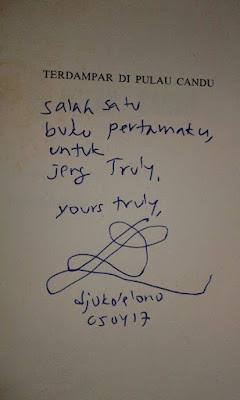 TERDAMPAR DI PULAU CANDU
salah satu
buku pertamaku,
untuk
jeng Truly,
yours truly,
djokolelono
050417